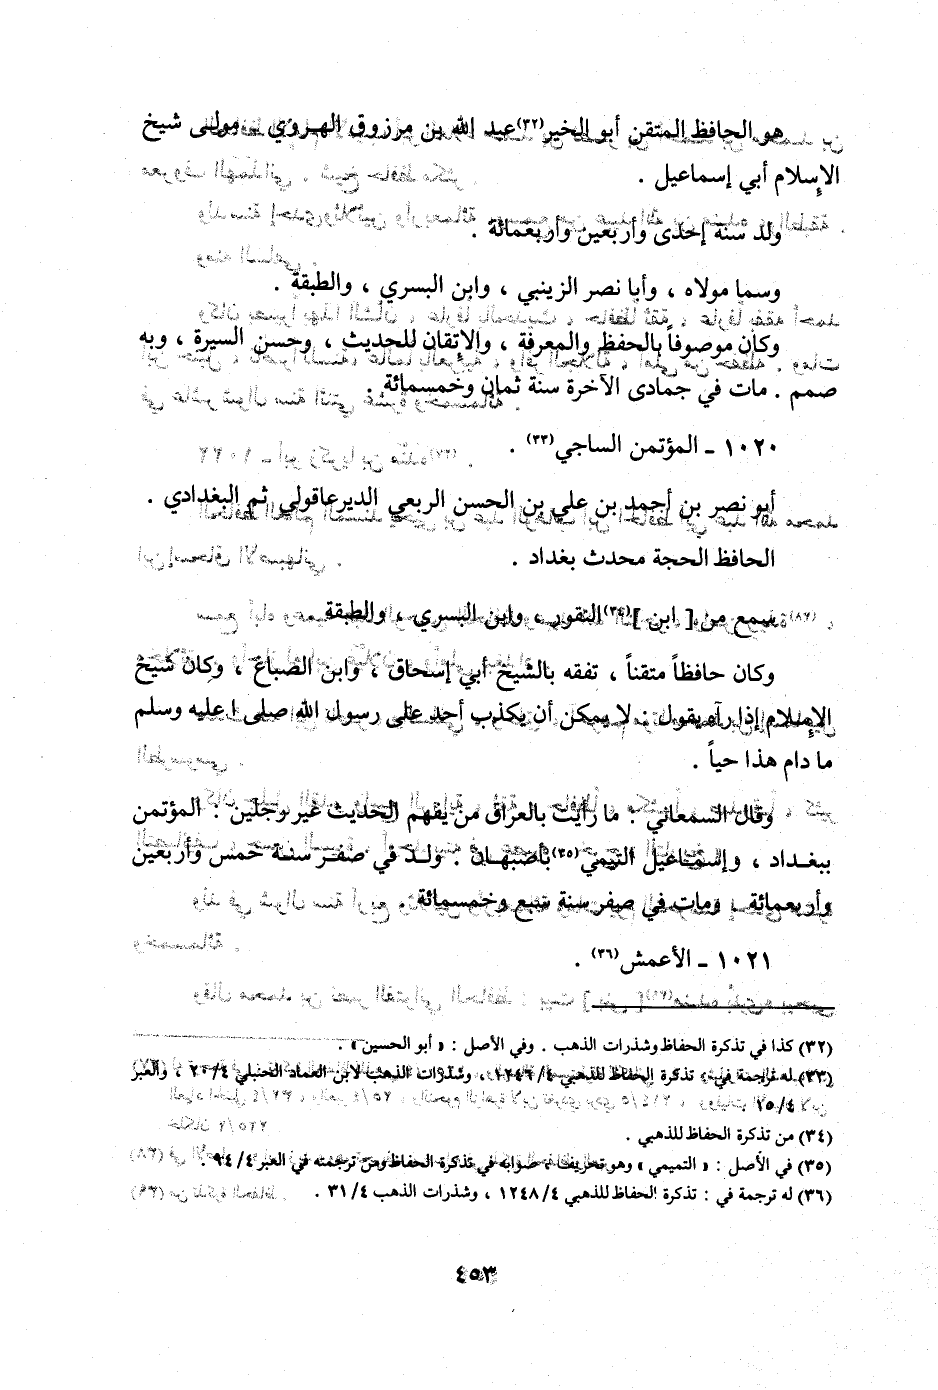 هو الحافظ المتقن أبو الخير(٣٢) عبد الله بن مرزوق الهروي ، مولى شيخ
الإسلام أبي إسماعيل .
ولد سنة إحدى وأربعين وأربعمائة .
وسما مولاه ، وأبا نصر الزينبي ، وابن البسري ، والطبقة .
وكان موصوفاً بالحفظ والمعرفة ، والاتقان للحديث ، وحسن السيرة ، وبه
صمم . مات في جمادى الآخرة سنة ثمان وخمسمائة .
١٠٢٠ ـ المؤتمن الساجي(٣٣) .
أبو نصر بن أحمد بن علي بن الحسن الربعي الديرعاقولي ثم البغدادي .
الحافظ الحجة محدث بغداد .
سمع من [ ابن ](٣٤) النقور ، وابن البسري ، والطبقة
وكان حافظاً متقناً ، تفقه بالشيخ أبي إسحاق ، وابن الصباغ ، وكان شيخ
الإسلام إذا رآه يقول : لا يمكن أن يكذب أحد على رسول الله صلى ا عليه وسلم
ما دام هذا حياً .
وقال السمعاني : ما رأيت بالعراق من يفهم الحديث غير رجلين : المؤتمن
ببغداد ، وإسماعيل التيمي(٣٥) بأصبهان . ولد في صفر سنة خمس وأربعين
وأربعمائة . ومات في صفر سنة سبع وخمسمائة
١٠٢١ ـ الأعمش(٣٦) .
(٣٢) كذا في تذكرة الحفاظ وشذرات الذهب . وفي الأصل : « أبو الحسين » .
(٣٣) له ترجمة في : تذكرة الحفاظ للذهبي ٤/١٢٤٦ ، وشذرات الذهب لابن العماد الحنبلي ٤/٢٠ ، والعبر
٤/١٥
(٣٤) من تذكرة الحفاظ للذهبي .
(٣٥) في الأصل : « التميمي » وهو تحريف ، صوابه في تذكرة الحفاظ ومن ترجمته في العبر ٤/٩٤ .
(٣٦) له ترجمة في : تذكرة الحفاظ للذهبي ٤/١٢٤٨ ، وشذرات الذهب ٤/٣١ .
٤٥٣